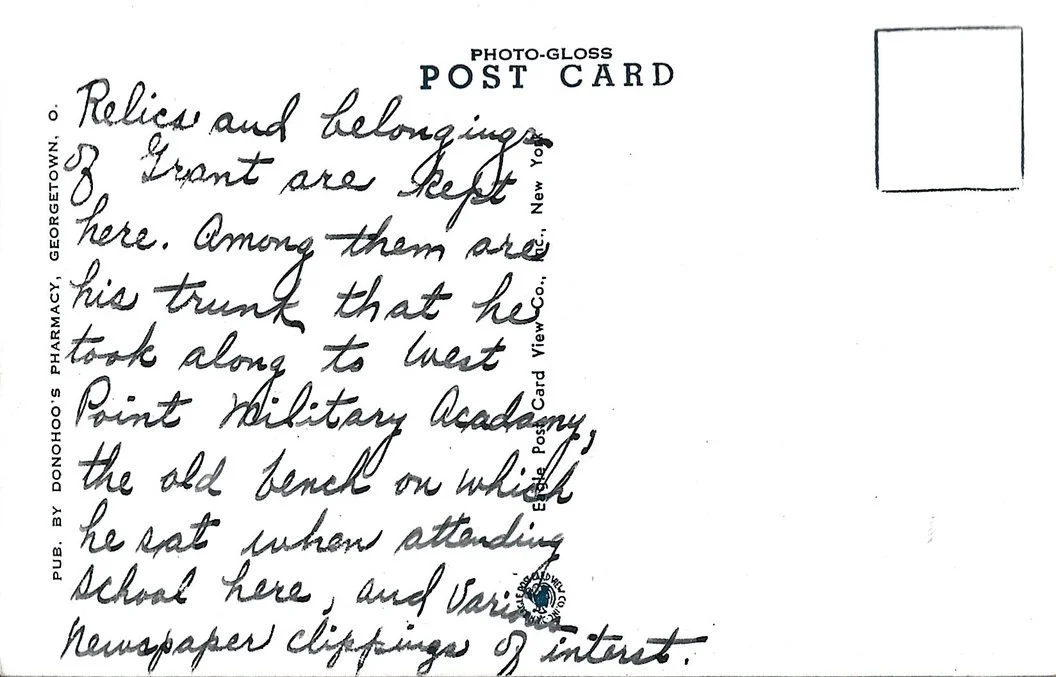 PHOTO-GLOSS
POST CARD
Relics and belongings
of Grant are kept
here. Among them are
his trunk that he
took along to West
Point Military Acadamy,
the old bench on which
he sat when attending
school here, and Various
Newspaper clippings of interst.
PUB. BY DONOHOO'S PHARMACY, GEORGETOWN, O.
Eagle Post Card View Co., Inc., New York
EAGLE POST CARD VIEW CO. INC.